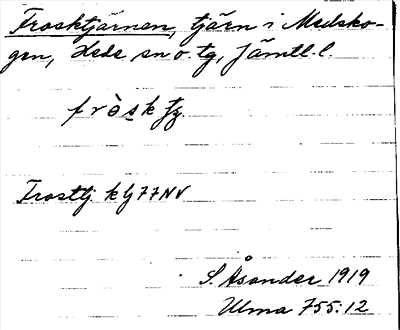 Frosktjärnen, tjärn i Medsko-
gen, Hede sn o. tg, Jämtl. l.
fròsktj.
Frosktj. k lj 77 NV
S. Åsander 1919
Ulma 755:12